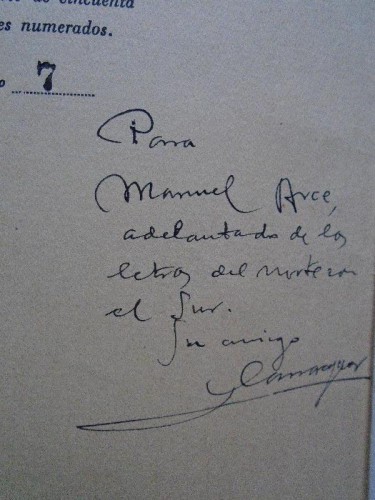 de cincuenta
es numerados.
o 7
Para
Manuel Arce,
adelantado de las
letras del norte en
el Sur.
Su amigo